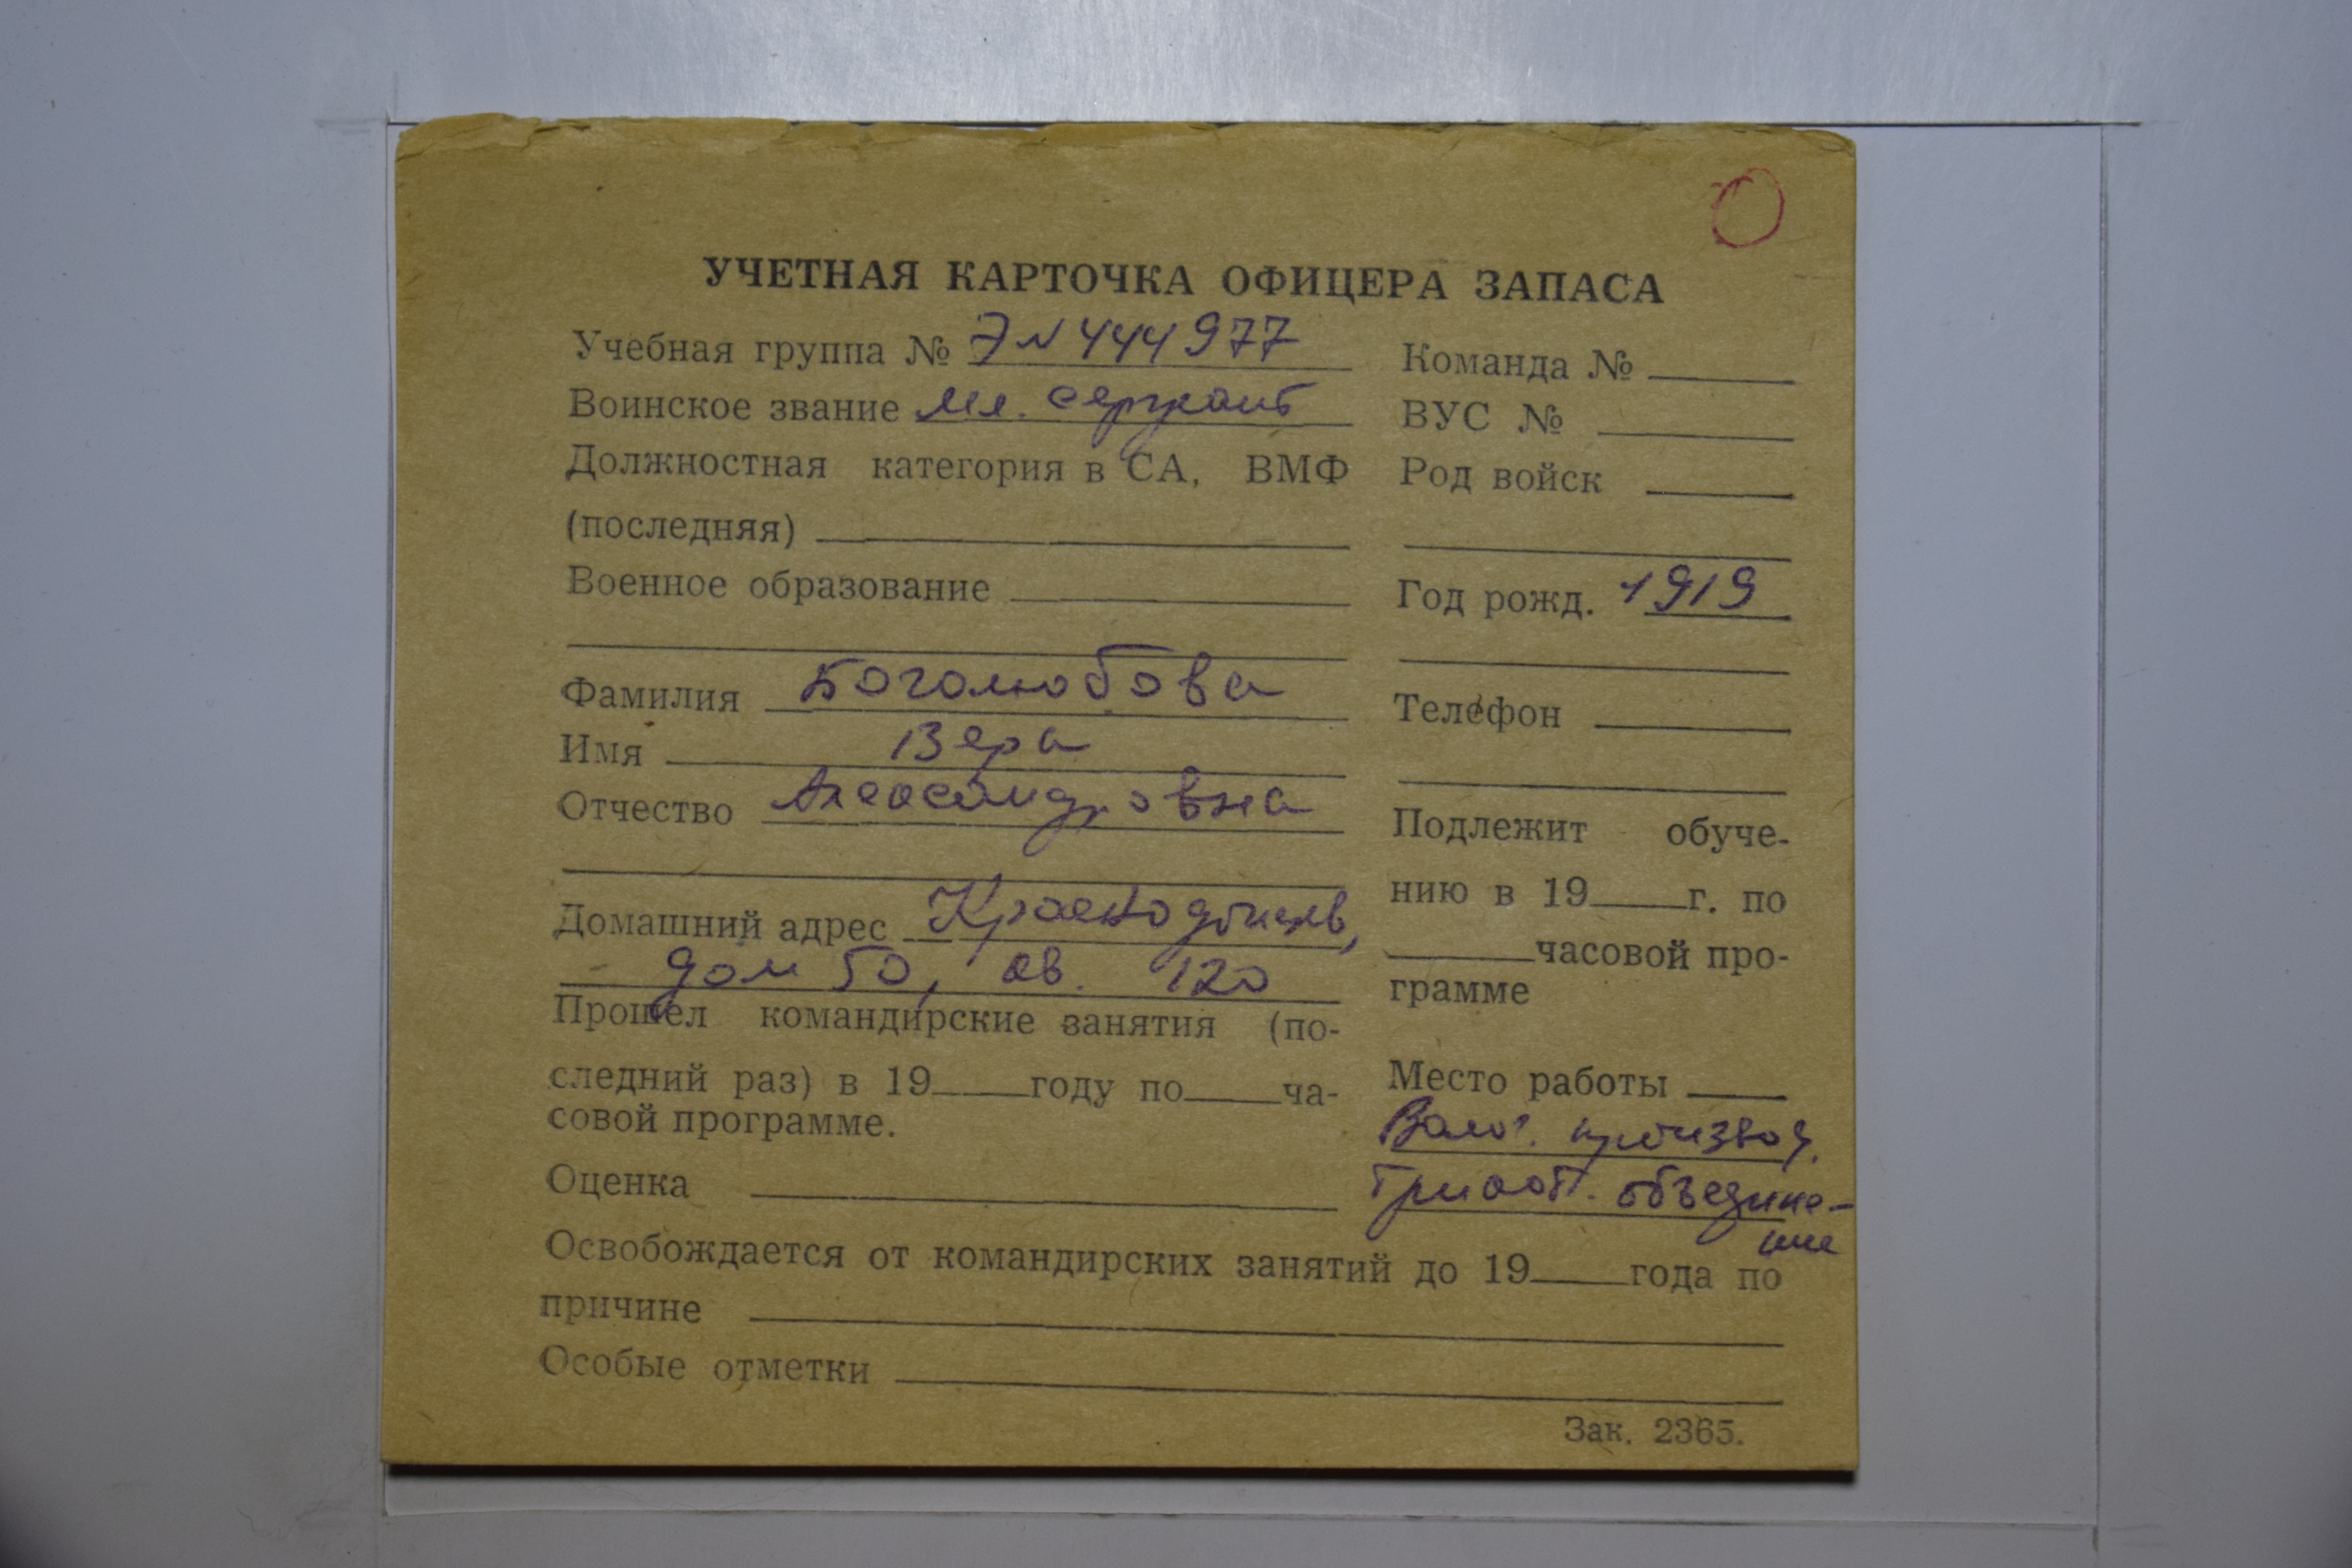 УЧЕТНАЯ КАРТОЧКА ОФИЦЕРА ЗАПАСА
Учебная группа № Э № 444977
Воинское звание мл. сержант
Должностная категория в СА, ВМФ
(последняя)
Военное образование
Фамилия Боголюбова
Имя Вера
Отчество Александровна
Домашний адрес Краснодонцев,
дом 50, кв. 120
Прошел командирские занятия (по-
следний раз) в 19 году по ча-
совой программе.
Оценка
Команда №
ВУС №
Род войск
Год рожд. 1919
Телефон
Подлежит обуче-
нию в 19 г. по
часовой про-
грамме
Место работы
Волог. производ.
трикот. объедине-
ние
Освобождается от командирских занятий до 19 года по
причине
Особые отметки
Зак. 2365.